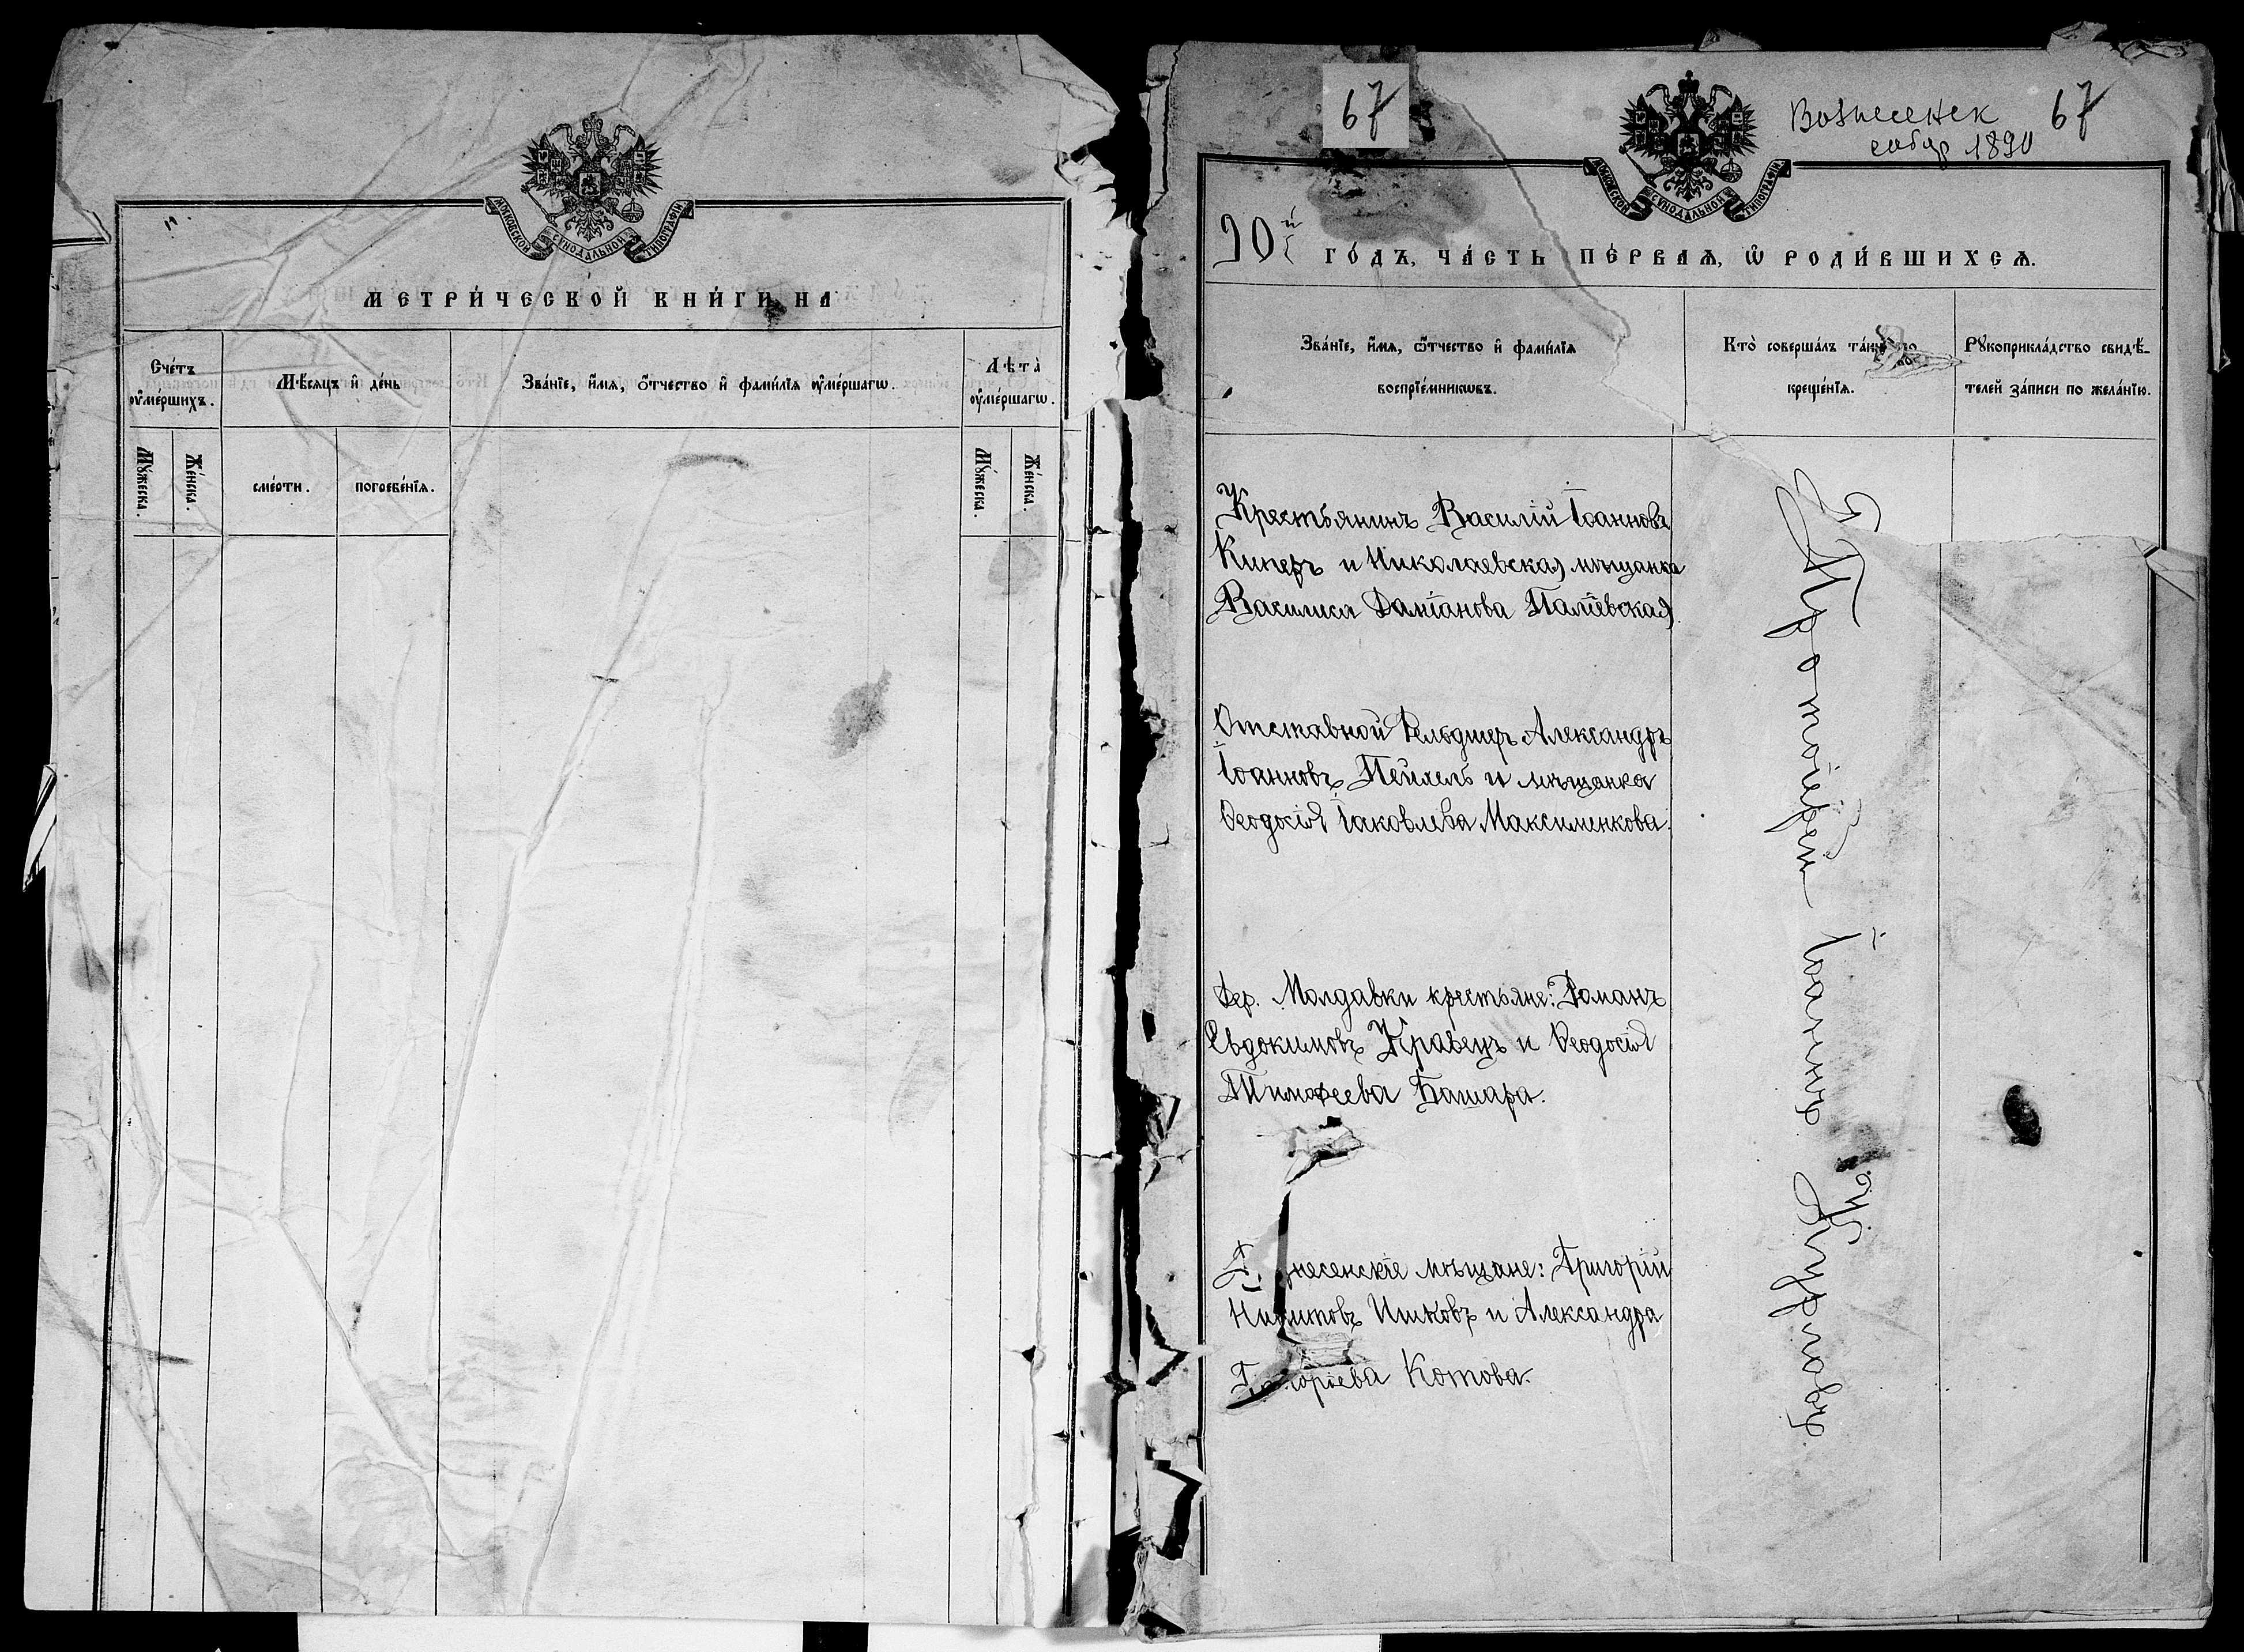 МОСКОВСКОЙ СУНОДАЛЬНОЙ ТИПОГРАФІИ
МЕТРИ́ЧЕСКОЙ КНИ́ГИ НА
Сче́тъ ᲂу҆ме́ршихъ.
Мѣ́сяцъ и҆ де́нь
Зва́нїе, и҆́мѧ, ѻ҆́тчество и҆ фами́лїѧ ᲂу҆ме́ршагѡ.
Лѣта̀ ᲂу҆ме́ршагѡ.
Мꙋ́жеска.
Же́нска.
сме́рти.
погребе́нїѧ.
Мꙋ́жеска.
Же́нска.
67
Вознесенск 67
собор 1890
МОСКОВСКОЙ СУНОДАЛЬНОЙ ТИПОГРАФІИ
90й ГО́ДЪ, ЧА́СТЬ ПЕ́РВАѦ, Ѡ҆ РОДИ́ВШИХСѦ.
Зва́нїе, и҆́мѧ, ѻ҆́тчество и҆ фами́лїѧ
воспрїе́мникѡвъ.
Кто̀ соверша́лъ
креще́нїѧ.
Рꙋкоприкла́дство свидѣ́-
телей за́писи по жела́нїю.
Крестьянинъ Василій Іоанновъ
Киперъ и Николаевская мѣщанка
Василиса Даміанова Паліевская.
Отставной Фельдшеръ Александръ
Іоанновъ Пейхель и мѣщанка
Ѳеодосія Іаковлева Максименкова.
Дер. Молдавки крестьяне: Романъ
Евдокимовъ Кравецъ и Ѳеодосія
Тимоѳеева Башара.
несенскіе мѣщане: Григорій
Никитовъ Ишковъ и Александра
Григоріева Котова.
Протоіерей Іоаннъ Курловъ.